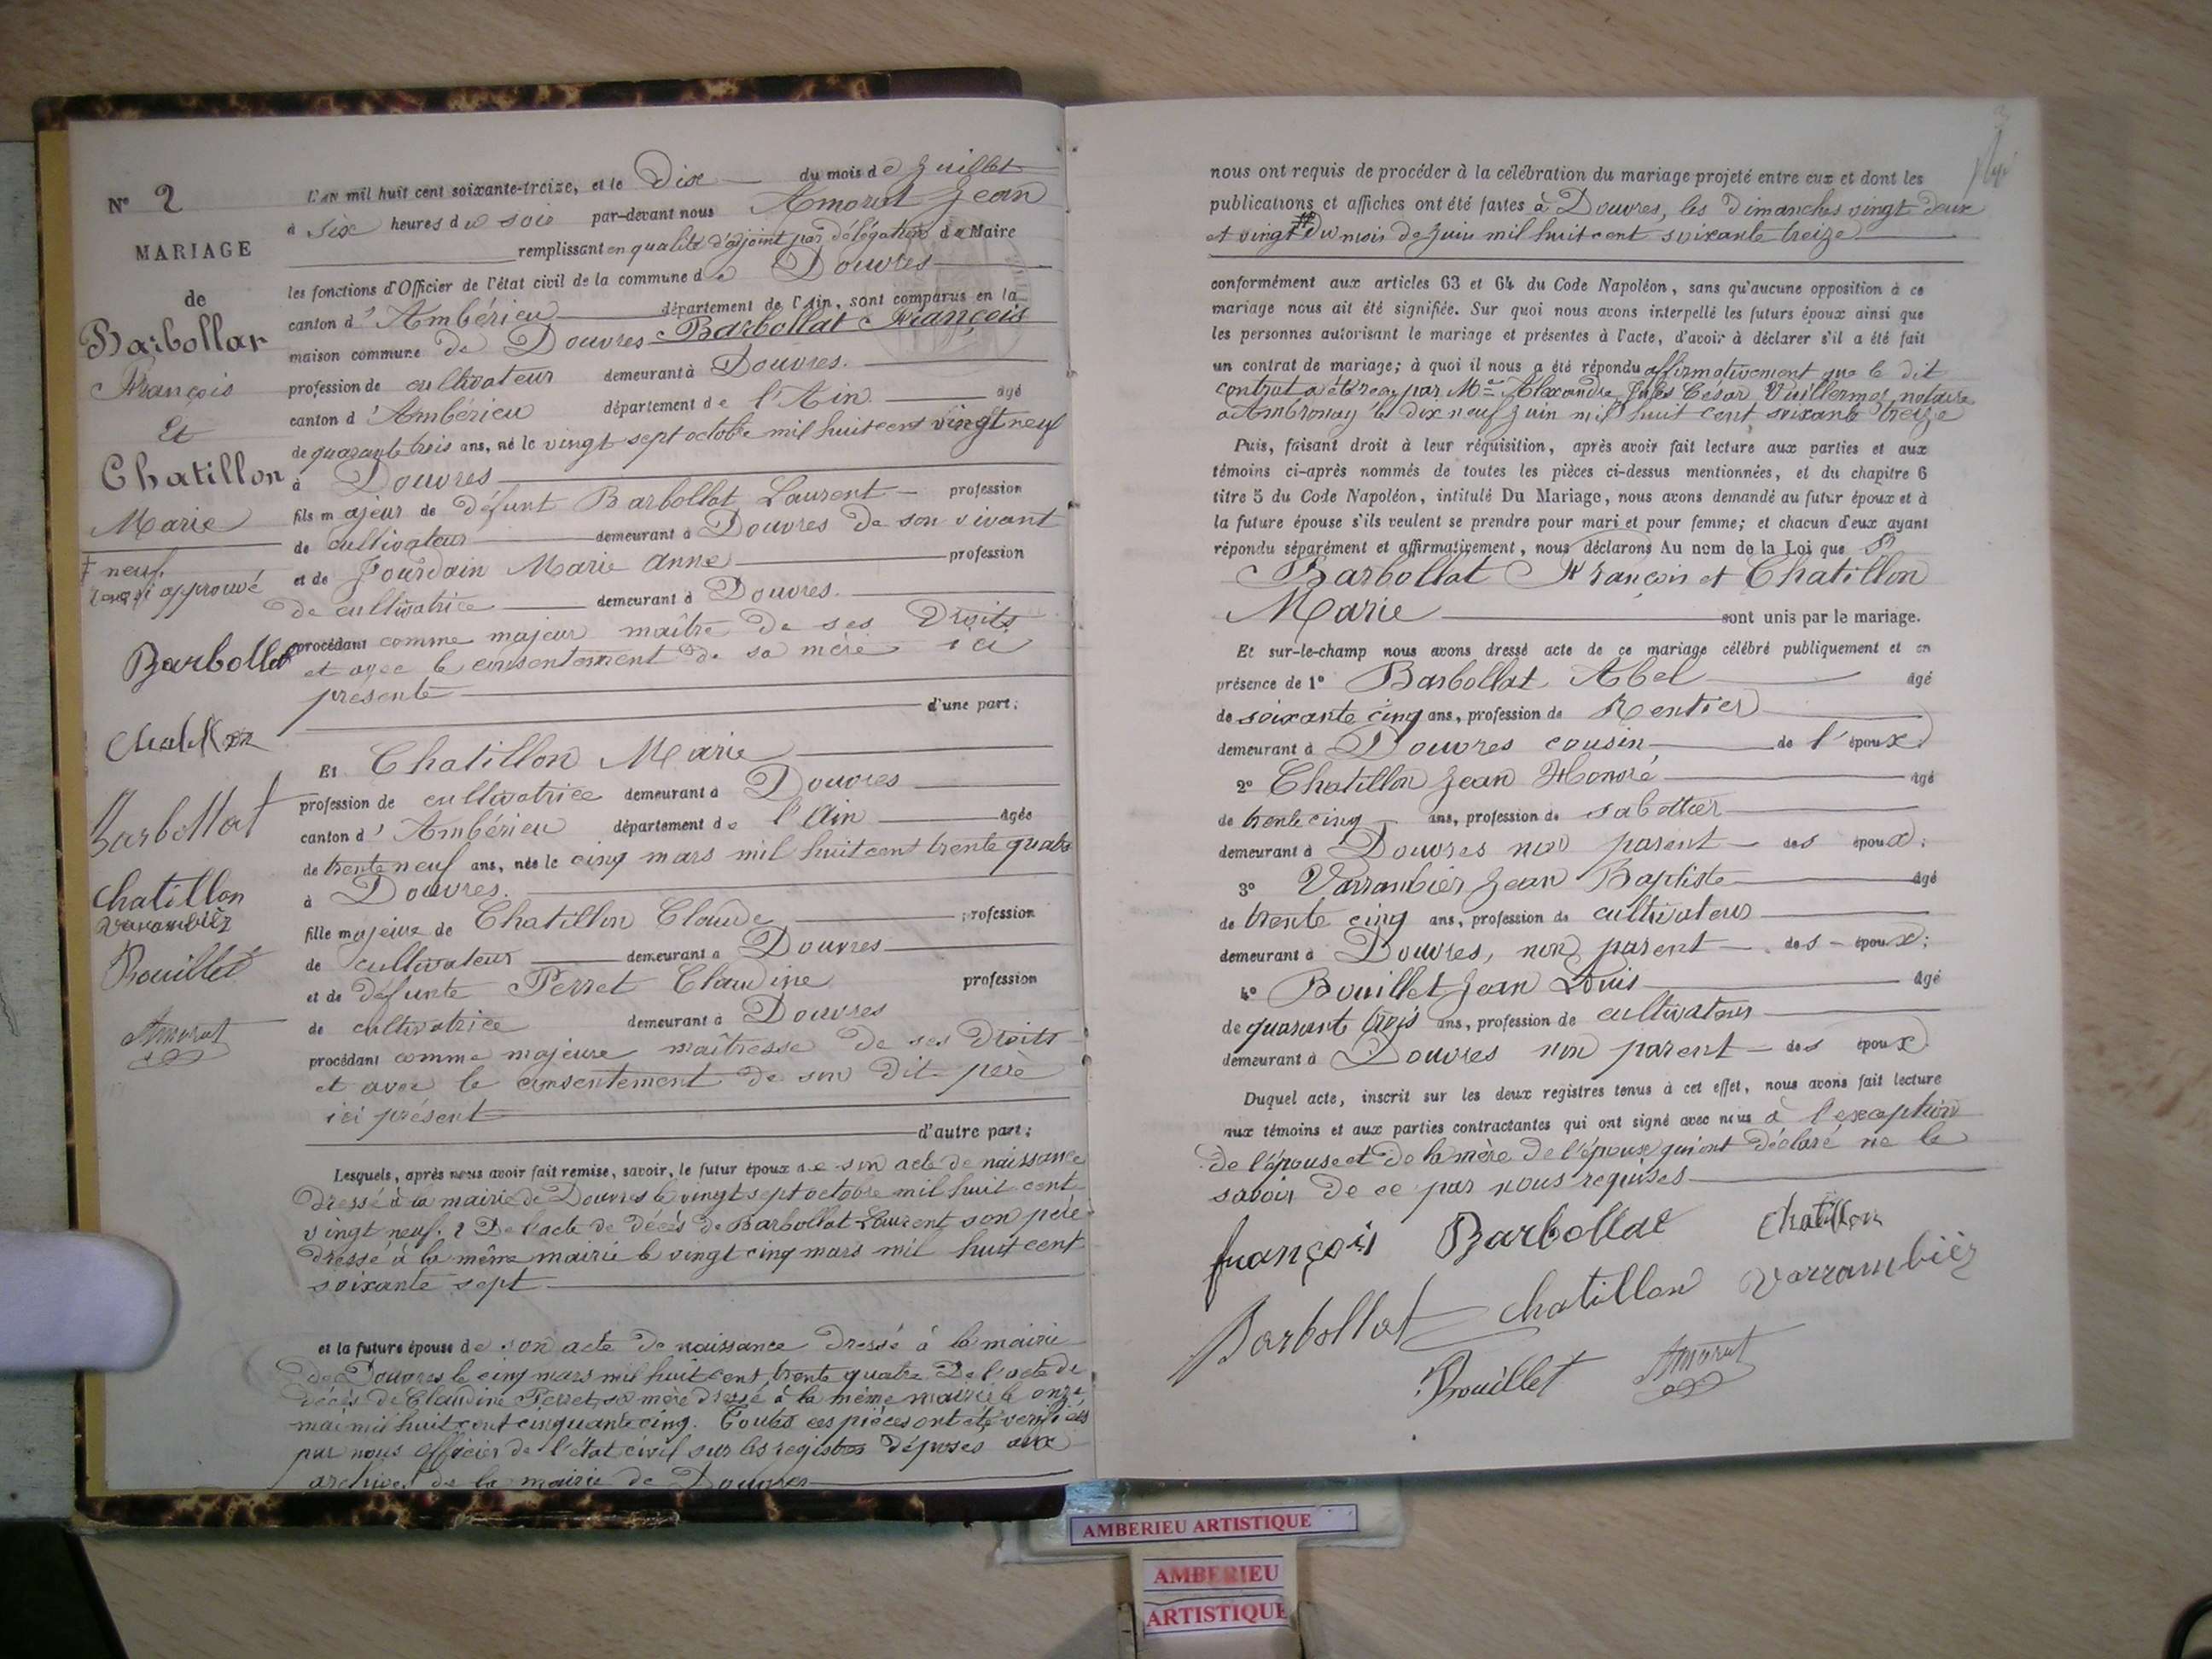 N° 2
MARIAGE
de
Barbollat
François
Et
Chatillon
Marie
neuf
approuvé
Barbollat
Chatillon
Barbollat
Chatillon
Varrambier
Bouillet
Amorut
L'AN mil huit cent soixante-treize, et le Dix du mois de Juillet
à Six heures du soir par-devant nous Amorut Jean
remplissant en qualité d'adjoint par délégation du Maire
les fonctions d'Officier de l'état civil de la commune de Douvres
canton d'Ambérieu département de l'Ain, sont comparus en la
maison commune de Douvres Barbollat François
profession de cultivateur demeurant à Douvres.
canton d'Ambérieu département de l'Ain âgé
de quarante trois ans, né le vingt sept octobre mil huit cent vingt neuf
à Douvres
fils majeur de défunt Barbollat Laurent profession
de cultivateur demeurant à Douvres de son vivant
et de Jourdain Marie Anne profession
de cultivatrice demeurant à Douvres.
procédant comme majeur maître de ses Droits
et avec le consentement de sa mère ici
présente
d'une part;
Et Chatillon Marie
profession de cultivatrice demeurant à Douvres
canton d'Ambérieu département de l'Ain âgée
de trente neuf ans, née le cinq mars mil huit cent trente quatre
à Douvres.
fille majeure de Chatillon Claude profession
de cultivateur demeurant à Douvres
et de défunte Perret Claudine profession
de cultivatrice demeurant à Douvres
procédant comme majeure maîtresse de ses Droits
et avec le consentement de son dit père
ici présent
d'autre part;
Lesquels, après nous avoir fait remise, savoir, le futur époux de son acte de naissance
Dressé à la mairie de Douvres le vingt sept octobre mil huit cent
vingt neuf. 2 De l'acte de décès de Barbollat Laurent son père
dressé à la même mairie le vingt cinq mars mil huit cent
soixante sept
et la future épouse de son acte de naissance dressé à la mairie
de Douvres le cinq mars mil huit cent trente quatre De l'acte de
décès de Claudine Perret, sa mère dressé à la même mairie le onze
mai mil huit cent cinquante cinq. Toutes ces pièces ont été vérifiées
par nous officier de l'état civil sur les registres déposés aux
archives de la mairie de Douvres
nous ont requis de procéder à la célébration du mariage projeté entre eux et dont les
publications et affiches ont été faites à Douvres, les dimanches vingt deux
et vingt du mois de juin mil huit cent soixante treize
conformément aux articles 63 et 64 du Code Napoléon, sans qu'aucune opposition à ce
mariage nous ait été signifiée. Sur quoi nous avons interpellé les futurs époux ainsi que
les personnes autorisant le mariage et présentes à l'acte, d'avoir à déclarer s'il a été fait
un contrat de mariage; à quoi il nous a été répondu affirmativement que le dit
contrat a été reçu par Me Alexandre Jules César Vuillermoz notaire
à Ambronay le dix neuf juin mil huit cent soixante treize
Puis, faisant droit à leur réquisition, après avoir fait lecture aux parties et aux
témoins ci-après nommés de toutes les pièces ci-dessus mentionnées, et du chapitre 6
titre 5 du Code Napoléon, intitulé Du Mariage, nous avons demandé au futur époux et à
la future épouse s'ils veulent se prendre pour mari et pour femme; et chacun d'eux ayant
répondu séparément et affirmativement, nous déclarons Au nom de la Loi que
Barbollat François et Chatillon
Marie sont unis par le mariage.
Et sur-le-champ nous avons dressé acte de ce mariage célébré publiquement et en
présence de 1° Barbollat Abel âgé
de soixante cinq ans, profession de Rentier
demeurant à Douvres cousin de l'époux
2° Chatillon Jean Honoré âgé
de trente cinq ans, profession de sabottier
demeurant à Douvres non parent des époux;
3° Varrambier Jean Baptiste âgé
de trente cinq ans, profession de cultivateur
demeurant à Douvres, non parent des époux;
4° Bouillet Jean Louis âgé
de quarant trois ans, profession de cultivateur
demeurant à Douvres non parent des époux
Duquel acte, inscrit sur les deux registres tenus à cet effet, nous avons fait lecture
aux témoins et aux parties contractantes qui ont signé avec nous à l'exception
de l'épouse et de la mère de l'époux qui ont déclaré ne le
savoir de ce par nous requises
françois Barbollat Chatillon
Barbollat Chatillon Varrambier
Bouillet Amorut
AMBERIEU ARTISTIQUE
AMBERIEU
ARTISTIQUE